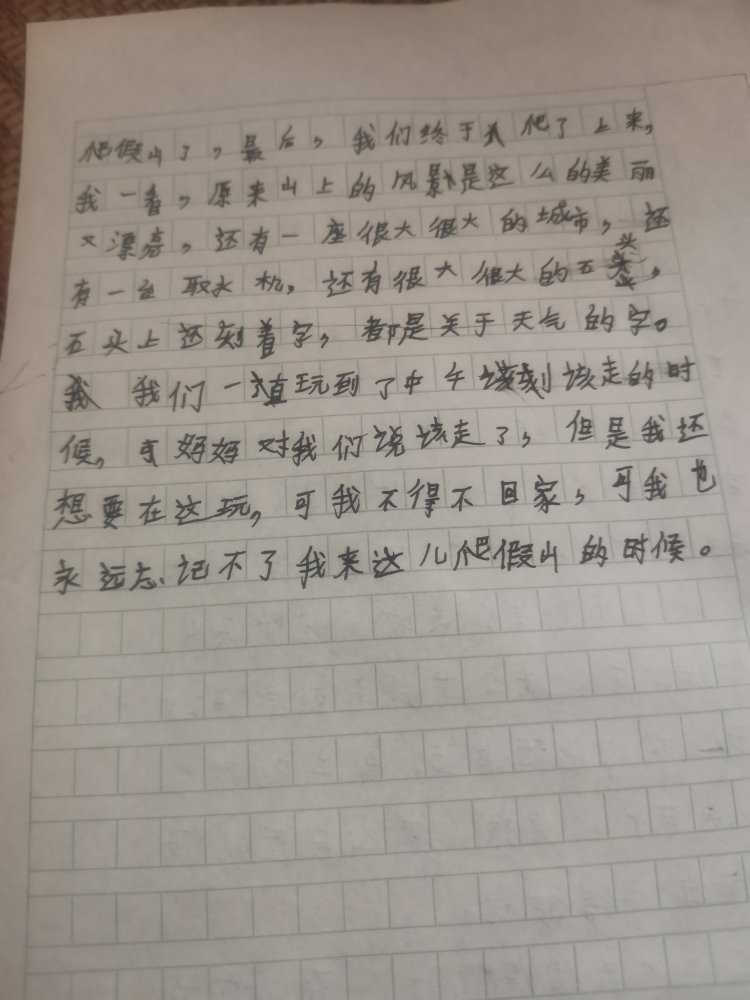 爬假山了，最后，我们终于爬了上来，
我一看，原来山上的风影是这么的美丽
又漂亮，还有一座很大很大的城市，还
有一台取水机，还有很大很大的五头，
五头上还刻着字，都是关于天气的字。
我们一直玩到了中午该刻该走的时
候，妈妈对我们说该走了，但是我还
想要在这玩，可我不得不回家，可我也
永远忘记不了我来这儿爬假山的时候。